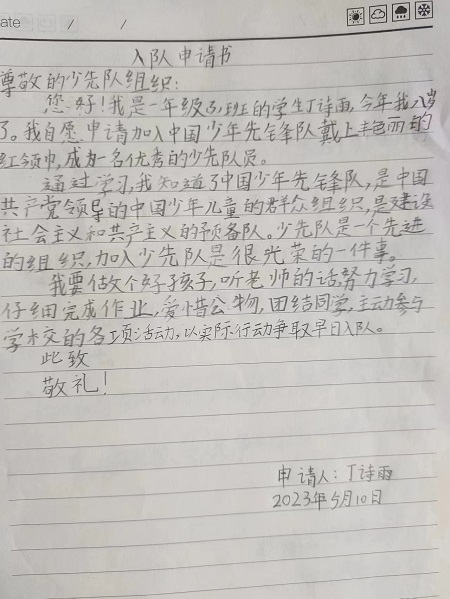 ate / /
入队申请书
尊敬的少先队组织:
您好!我是一年级3班的学生丁诗雨,今年我八岁
了。我自愿申请加入中国少年先锋队戴上艳丽的
红领巾,成为一名优秀的少先队员。
通过学习,我知道了中国少年先锋队,是中国
共产党领导的中国少年儿童的群众组织,是建设
社会主义和共产主义的预备队。少先队是一个先进
的组织,加入少先队是很光荣的一件事。
我要做个好孩子,听老师的话,努力学习,
仔细完成作业,爱惜公物,团结同学,主动参与
学校的各项活动,以实际行动争取早日入队。
此致
敬礼!
申请人:丁诗雨
2023年5月10日